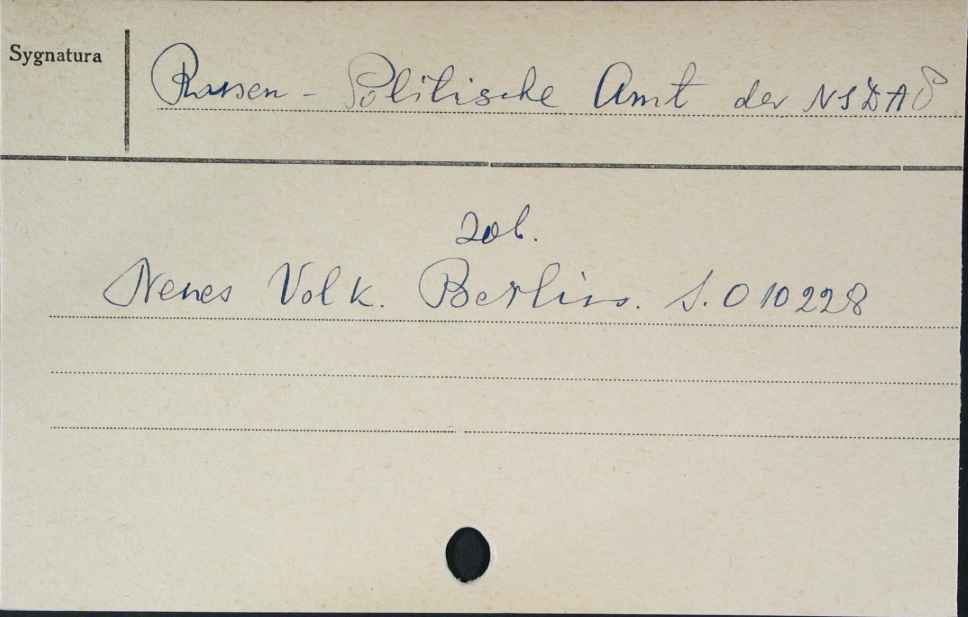 Sygnatura
Rassen - Politische Amt der NSDAP
zob.
Neues Volk. Berlin. S. 010228